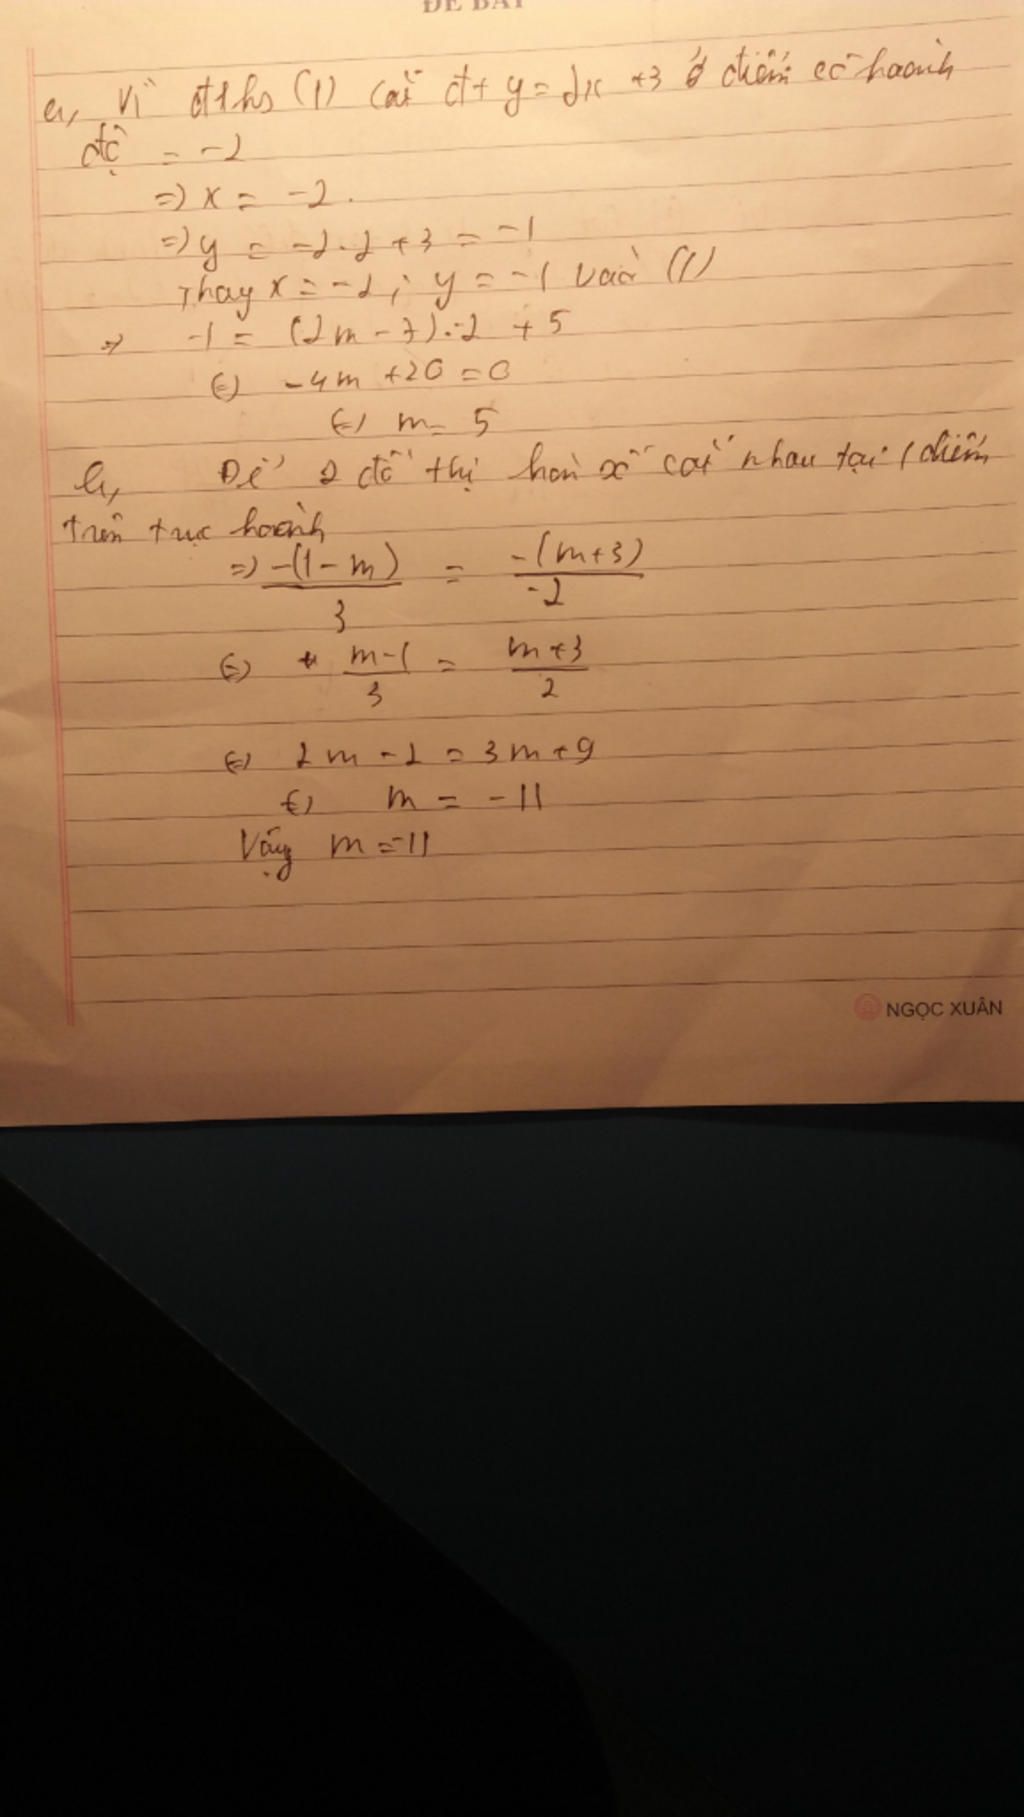 ĐỀ BÀI
a, Vì đths (1) cắt đt y = 2x + 3 ở điểm có hoành
độ = -2
=> x = -2.
=> y = -2.2 + 3 = -1
Thay x = -2; y = -1 vào (1)
=> -1 = (2m - 7).-2 + 5
(=) -4m + 20 = 0
(=) m = 5
b, Để 2 đồ thị hàm số cắt nhau tại 1 điểm
trên trục hoành
=) -(1 - m)/3 = -(m+3)/-2
(=) m-1/3 = m+3/2
(=) 2m - 2 = 3m + 9
(=) m = -11
Vậy m = -11
NGỌC XUÂN